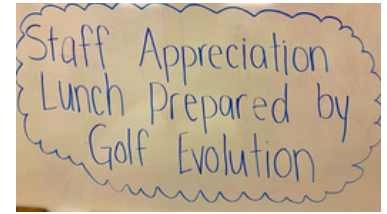 Staff Appreciation
Lunch Prepared by
Golf Evolution